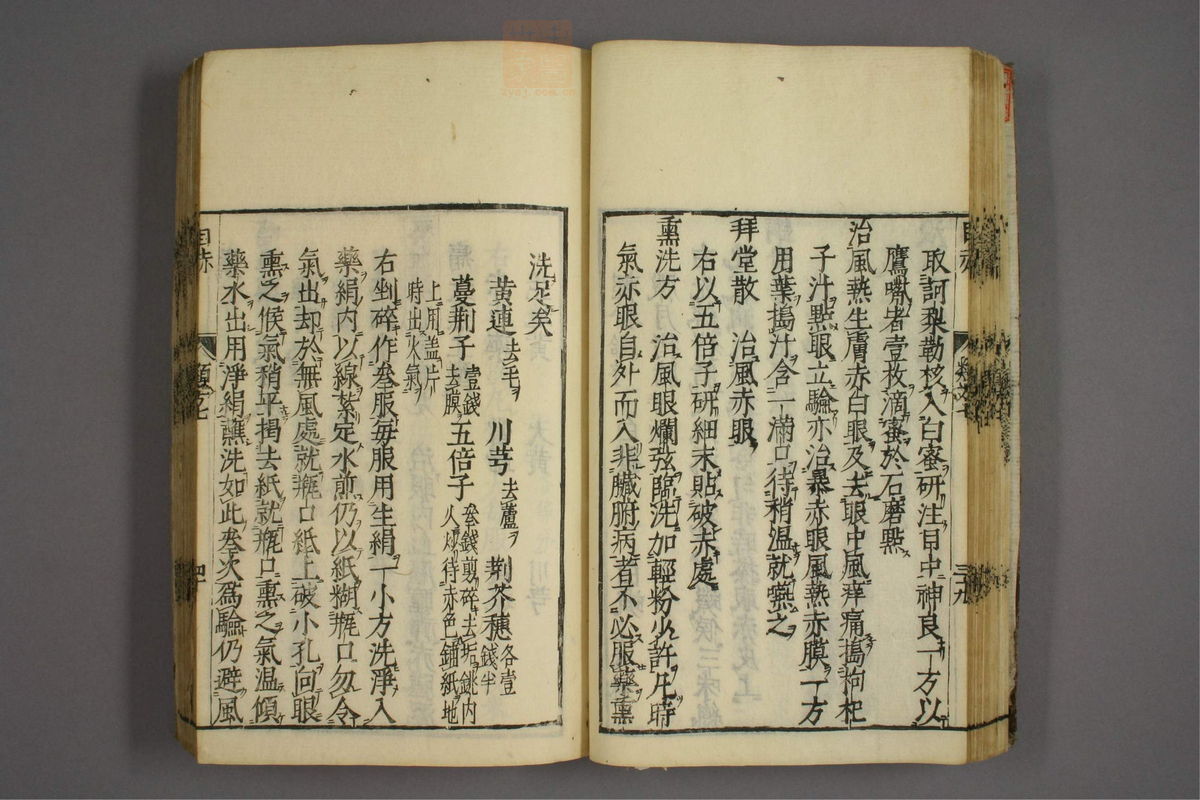 取訶梨勒核入白蜜研注目中神良一方以
鷹嘴者壹枚滴蜜於石磨點
治風熱生膚赤白眼及去眼中風痒痛搗狗杞
子汁點眼立驗亦治暴赤眼風熱赤膜一方
用葉搗汁含一滿口待稍温就嚥之
拜堂散　治風赤眼
右以五倍子研細末貼破赤處
熏洗方　治風眼爛弦臨洗加輕粉少許凡時
氣赤眼自外而入非臟腑病者不必服藥熏
三十九
洗足矣
黄連去毛　川芎去蘆　荆芥穗各壹錢半
蔓荆子壹錢去膜　五倍子叁錢剪碎去垢銚内火炒待赤色鋪紙地
上用盖片時出火氣
右剉碎作叁服每服用生絹一小方洗淨入
藥絹内以線紮定水煎仍以紙糊甁口勿令
氣出却於無風處就甁口紙上破小孔向眼
熏之候氣稍平揭去紙就甁口熏之氣温傾
藥水出用淨絹蘸洗如此叁次爲驗仍避風
目赤
類方七
四十
zycj.com.cn